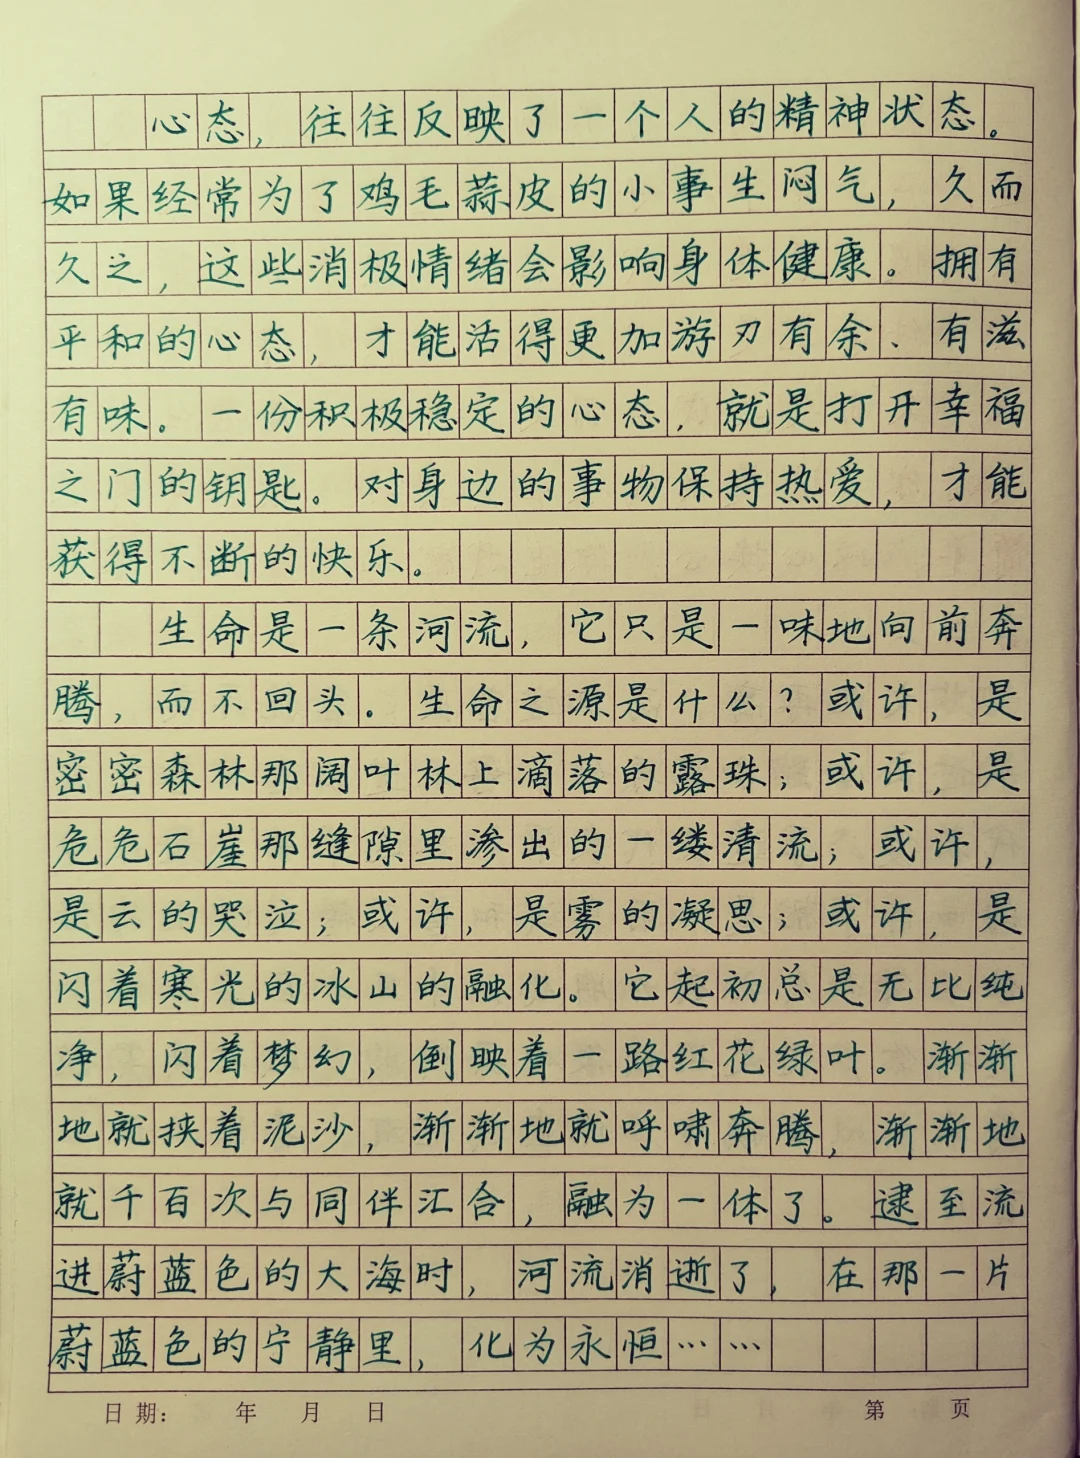 心态，往往反映了一个人的精神状态。
如果经常为了鸡毛蒜皮的小事生闷气，久而
久之，这些消极情绪会影响身体健康。拥有
平和的心态，才能活得更加游刃有余、有滋
有味。一份积极稳定的心态，就是打开幸福
之门的钥匙。对身边的事物保持热爱，才能
获得不断的快乐。
生命是一条河流，它只是一味地向前奔
腾，而不回头。生命之源是什么？或许，是
密密森林那阔叶林上滴落的露珠；或许，是
危危石崖那缝隙里渗出的一缕清流；或许，
是云的哭泣；或许，是雾的凝思；或许，是
闪着寒光的冰山的融化。它起初总是无比纯
净，闪着梦幻，倒映着一路红花绿叶。渐渐
地就挟着泥沙，渐渐地就呼啸奔腾，渐渐地
就千百次与同伴汇合，融为一体了。逮至流
进蔚蓝色的大海时，河流消逝了，在那一片
蔚蓝色的宁静里，化为永恒……
日期：　年　月　日　第　页